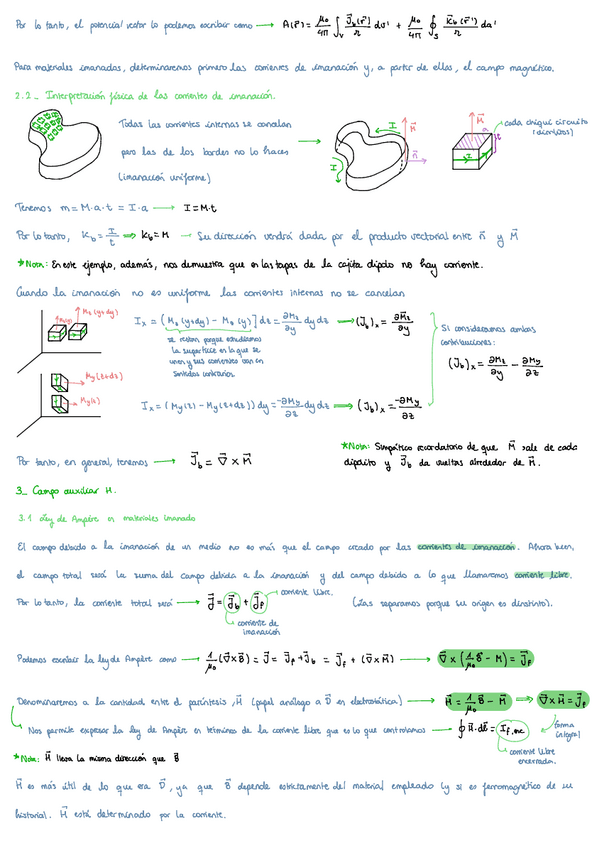 Por lo tanto, el potencial vector lo podemos escribir como → A(r⃗) = μ₀/4π ∫ᵥ J⃗b(r⃗')/r dv' + μ₀/4π ∮ₛ K⃗b(r⃗')/r da'
Para materiales imanados, determinaremos primero las corrientes de imanación y, a partir de ellas, el campo magnético.
2.2_ Interpretación física de las corrientes de imanación.
Todas las corrientes internas se cancelan
pero las de los bordes no lo hacen
(imanación uniforme)
I
I
M⃗
n⃗
M⃗
a
t
I
cada chiqui circuito
Tenemos m = M·a·t = I·a → I = M·t
Por lo tanto, Kb = I/t ⇒ Kb = M → Su dirección vendrá dada por el producto vectorial entre n⃗ y M⃗
*Nota: En este ejemplo, además, nos demuestra que en las tapas de la cajita dipolo no hay corriente.
Cuando la imanación no es uniforme las corrientes internas no se cancelan
Mz(y)
Mz(y+dy)
Ix = [Mz(y+dy) - Mz(y)] dz = ∂Mz/∂y dy dz → (Jb)x = ∂Mz/∂y
se restan porque estudiamos
la superficie en la que se
unen y sus corrientes van en
sentidos contrarios.
Si consideramos ambas
contribuciones:
(Jb)x = ∂Mz/∂y - ∂My/∂z
My(z+dz)
My(z)
Ix = (My(z) - My(z+dz)) dy = -∂My/∂z dy dz ⇒ (Jb)x = -∂My/∂z
*Nota: Simpático recordatorio de que M⃗ sale de cada
dipolito y J⃗b da vueltas alrededor de M⃗.
Por tanto, en general, tenemos → J⃗b = ∇⃗ × M⃗
3_ Campo auxiliar H.
3.1 Ley de Ampère en materiales imanados
El campo debido a la imanación de un medio no es más que el campo creado por las corrientes de imanación. Ahora bien,
el campo total será la suma del campo debida a la imanación y del campo debido a lo que llamaremos corriente libre.
Por lo tanto, la corriente total será → J⃗ = J⃗b + J⃗f (Las separamos porque su origen es distinto).
corriente libre.
corriente de
imanación
Podemos escribir la ley de Ampère como → 1/μ₀ (∇⃗×B⃗) = J⃗ = J⃗f + J⃗b = J⃗f + (∇⃗×M⃗) → ∇⃗ × (1/μ₀ B⃗ - M⃗) = J⃗f
Denominaremos a la cantidad entre el paréntesis, H⃗ (papel análogo a D⃗ en electrostática) → H⃗ = 1/μ₀ B⃗ - M⃗ ⇒ ∇⃗×H⃗ = J⃗f
Nos permite expresar la ley de Ampère en términos de la corriente libre que es lo que controlamos → ∮ H⃗·dl⃗ = If,enc
forma
integral
corriente libre
encerrada.
*Nota: H⃗ lleva la misma dirección que B⃗
H⃗ es más útil de lo que era D⃗, ya que B⃗ depende estrictamente del material empleado (y si es ferromagnético de su
historial. H⃗ está determinado por la corriente.